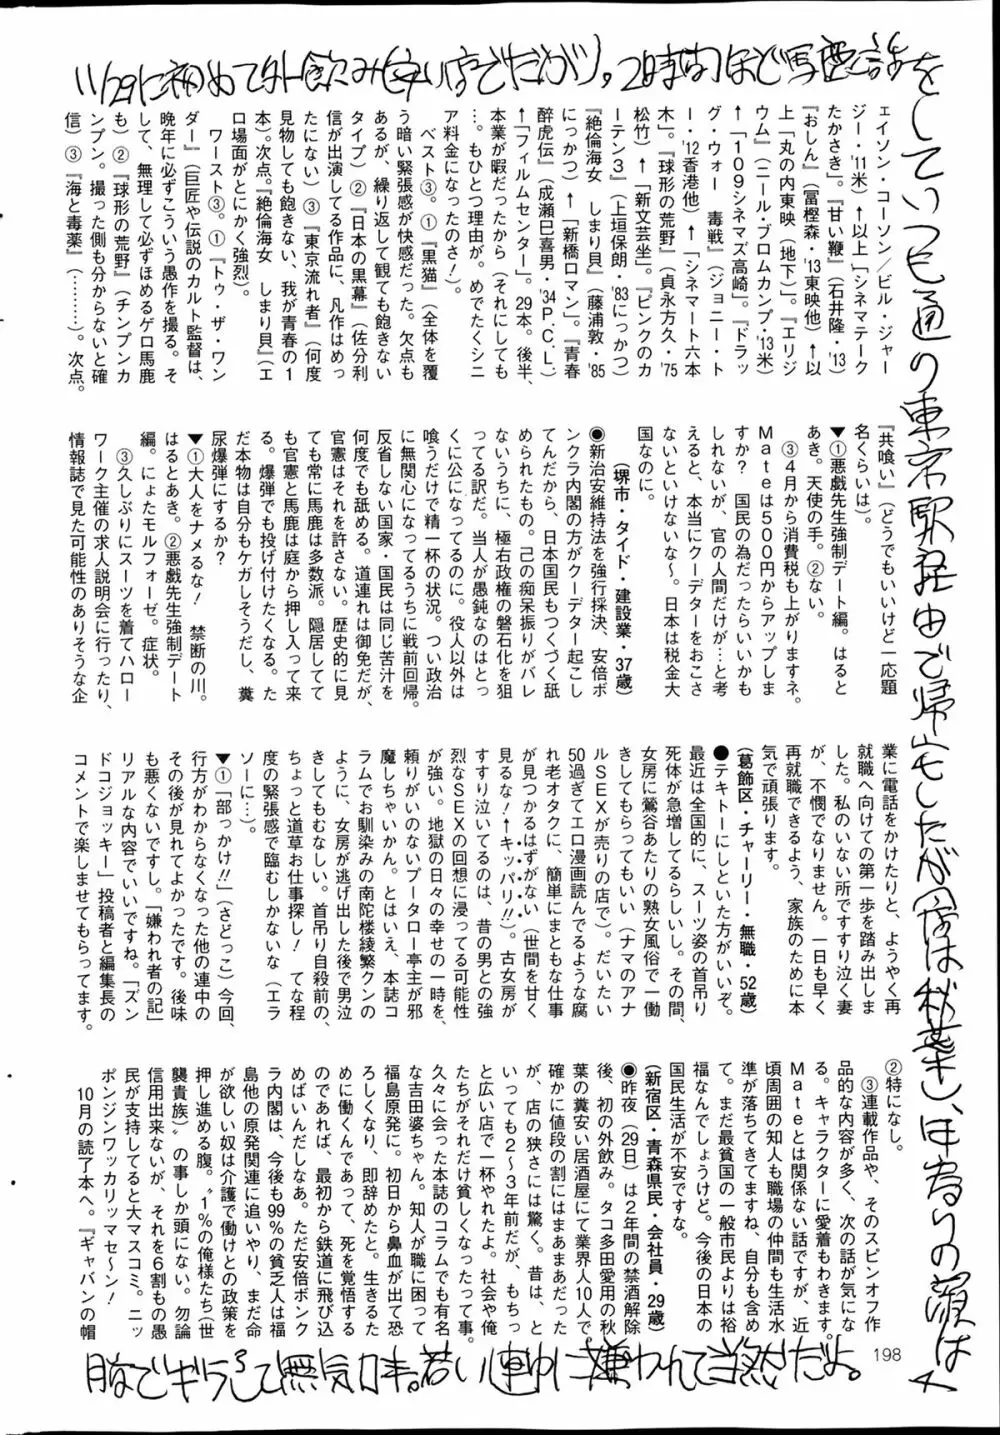 11/29に初めて外飲み(安い店でだが)。2時間ほど馬鹿話を
していつも通り東京駅経由で帰宅したが(店は秋葉)、
腹でギラっこて無気力
若い連中に嫌われて当然だよ。
ェイソン・コーソン／ビル・ジャー
ジー・'11米)↑以上「シネマテーク
たかさき」。『甘い鞭』(石井隆・'13)
『おしん』(冨樫森・'13東映他)↑以
上「丸の内東映(地下)」。『エリジ
ウム』(ニール・ブロムカンプ・'13米)
↑「109シネマズ高崎」。『ドラッ
グ・ウォー　毒戦』(ジョニー・ト
ー・'12香港他)↑「シネマート六本
木」。『球形の荒野』(貞永方久・'75
松竹)↑「新文芸坐」。『ピンクのカ
ーテン3』(上垣保朗・'83にっかつ)
『絶倫海女　しまり貝』(藤浦敦・'85
にっかつ)↑「新橋ロマン」。『青春
酔虎伝』(成瀬巳喜男・'34P.C.L.)
↑「フィルムセンター」。29本。後半、
本業が暇だったから(それにしても
…。もひとつ理由が。めでたくシニ
ア料金になったのさ！)。
ベスト③。①『黒猫』(全体を覆
う暗い緊張感が快感だった。欠点も
あるが、繰り返して観ても飽きない
タイプ)②『日本の黒幕』(佐分利
信が出演してる作品に、凡作はめっ
たにない)③『東京流れ者』(何度
見物しても飽きない、我が青春の1
本)。次点。『絶倫海女　しまり貝』(エ
口場面がとにかく強烈)。
ワースト③。①『トゥ・ザ・ワン
ダー』(巨匠や伝説のカルト監督は、
晩年に必ずこういう愚作を撮る。そ
して、無理して必ずほめるゲロ馬鹿
も)②『球形の荒野』(チンプンカ
ンプン。撮った側も分からないと確
信)③『海と毒薬』(………)。次点。
『共喰い』(どうでもいいけど一応題
名くらいは)。
▼①悪戯先生強制デート編。はると
あき。天使の手。②ない。
③4月から消費税も上がりますネ。
Mateは500円からアップしま
すか？　国民の為だったらいいかも
しれないが、官の人間だけが…と考
えると、本当にクーデターをおこさ
ないといけないな～。日本は税金大
国なのに。
(堺市・タイド・建設業・37歳)
●新治安維持法を強行採決、安倍ボ
ンクラ内閣の方がクーデター起こし
てんだから、日本国民もつくづく舐
められたもの。己の痴呆振りがバレ
ないうちに、極右政権の磐石化を狙
ってる訳だ。当人が愚鈍なのはとっ
くに公になってるのに。役人以外は
喰うだけで精一杯の状況。つい政治
に無関心になってるうちに戦前回帰。
反省しない国家・国民は同じ苦汁を
何度でも舐める。道連れは御免だが、
官憲はそれを許さない。歴史的に見
ても常に馬鹿は多数派。隠居してて
も官憲と馬鹿は庭から押し入って来
る。爆弾でも投げ付けたくなる。た
だ本物は自分もケガしそうだし、糞
尿爆弾にするか？
▼①大人をナメるな！　禁断の川。
はるとあき。②悪戯先生強制デート
編。にょたモルフォーゼ。症状。
③久しぶりにスーツを着てハロー
ワーク主催の求人説明会に行ったり、
情報誌で見た可能性のありそうな企
業に電話をかけたりと、ようやく再
就職へ向けての第一歩を踏み出しま
した。私のいない所ですすり泣く妻
が、不憫でなりません。一日も早く
再就職できるよう、家族のために本
気で頑張ります。
(葛飾区・チャーリー・無職・52歳)
●テキトーにしといた方がいいぞ。
最近は全国的に、スーツ姿の首吊り
死体が急増してるらしいし。その間、
女房に鶯谷あたりの熟女風俗で一働
きしてもらってもいい(ナマのアナ
ルSEXが売りの店で)。だいたい
50過ぎてエロ漫画読んでるような腐
れ老オタクに、簡単にまともな仕事
が見つかるはずがない(世間を甘く
見るな！↑キッパリ!!)。古女房が
すすり泣いてるのは、昔の男との強
烈なSEXの回想に浸ってる可能性
が強い。地獄の日々の幸せの一時を、
頼りがいのないプータロー亭主が邪
魔しちゃいかん。とはいえ、本誌コ
ラムでお馴染みの南陀楼綾繁クンの
ように、女房が逃げ出した後で男泣
きしてもむなしい。首吊り自殺前の、
ちょっと道草お仕事探し！　てな程
度の緊張感で臨むしかないな(エラ
ソーに…)。
▼①「部っかけ!!」(さどっこ)今回、
行方がわからなくなった他の連中の
その後が見れてよかったです。後味
も悪くないですし。「嫌われ者の記」
リアルな内容でいいですね。「ズン
ドコジョッキー」投稿者と編集長の
コメントで楽しませてもらってます。
②特になし。
③連載作品や、そのスピンオフ作
品的な内容が多く、次の話が気にな
る。キャラクターに愛着もわきます。
Mateとは関係ない話ですが、近
頃周囲の知人も職場の仲間も生活水
準が落ちてきてますね、自分も含め
て。まだ最貧国の一般市民よりは裕
福なんでしょうけど。今後の日本の
国民生活が不安ですな。
(新宿区・青森県民・会社員・29歳)
●昨夜(29日)は2年間の禁酒解除
後、初の外飲み。タコ多田愛用の秋
葉の糞安い居酒屋にて業界人10人で。
確かに値段の割にはまあまあだった
が、店の狭さには驚く。昔は、と
いっても2～3年前だが、もちっ
と広い店で一杯やれたよ。社会や俺
たちがそれだけ貧しくなったって事。
久々に会った本誌のコラムでも有名
な吉田婆ちゃん。知人が職に困って
福島原発に。初日から鼻血が出て恐
ろしくなり、即辞めたと。生きるた
めに働くんであって、死を覚悟する
のであれば、最初から鉄道に飛び込
めばいんだしなあ。ただ安倍ボンク
ラ内閣は、今後も99％の貧乏人は福
島他の原発関連に追いやり、まだ命
が欲しい奴は介護で働けとの政策を
押し進める腹。〝1％の俺様たち(世
襲貴族)〟の事しか頭にない。勿論
信用出来ないが、それを6割もの愚
民が支持してると大マスコミ。ニッ
ポンジンワッカリマセ～ン！
10月の読了本へ。『ギャバンの帽
198